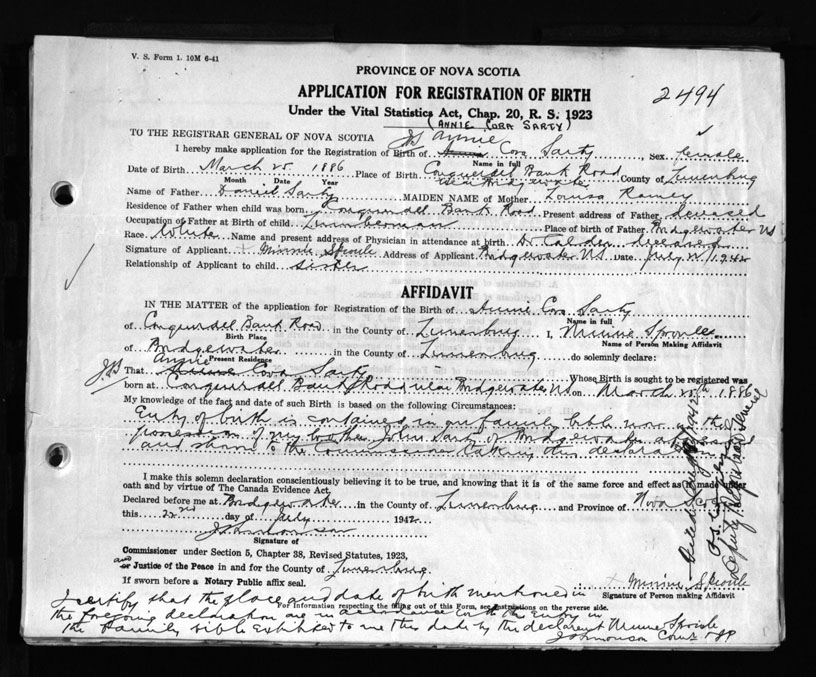 V. S. Form 1. 10M 6-41
2494
PROVINCE OF NOVA SCOTIA
APPLICATION FOR REGISTRATION OF BIRTH
Under the Vital Statistics Act, Chap. 20, R. S. 1923
(ANNIE CORA SARTY)
TO THE REGISTRAR GENERAL OF NOVA SCOTIA
Annie
I hereby make application for the Registration of Birth of Cora Sarty, Sex female
Name in full
Date of Birth March 25 1886 Place of Birth Conquerdel Bank Road County of Lunenburg
Month Date Year
near Bridgewater
Name of Father Daniel Sarty MAIDEN NAME of Mother Louisa Ramey
Residence of Father when child was born Conquerdel Bank Road Present address of Father deceased
Occupation of Father at Birth of child Lumberman Place of birth of Father Bridgewater NS
Race White Name and present address of Physician in attendance at birth Dr. Calder deceased
Signature of Applicant Minnie Sproule Address of Applicant Bridgewater NS Date July 22 1942
Relationship of Applicant to child sister
AFFIDAVIT
IN THE MATTER of the application for Registration of the Birth of Cora Sarty
Name in full
of Conquerdel Bank Road in the County of Lunenburg I, Minnie Sproule
Birth Place Name of Person Making Affidavit
of Bridgewater in the County of Lunenburg do solemnly declare:
Present Residence
Annie
That Cora Sarty Whose Birth is sought to be registered was
born at Conquerdel Bank Road near Bridgewater NS on March 25th 1886
My knowledge of the fact and date of such Birth is based on the following Circumstances:
Entry of birth is contained in our family bible now in the
possession of my brother John Sarty of Bridgewater
and shown to the Commissioner taking this declaration
I make this solemn declaration conscientiously believing it to be true, and knowing that it is of the same force and effect as if made under
oath and by virtue of The Canada Evidence Act.
Declared before me at Bridgewater in the County of Lunenburg and Province of Nova Scotia
this 22nd day of July 1942
Signature of
Commissioner under Section 5, Chapter 38, Revised Statutes, 1923,
and
or Justice of the Peace in and for the County of Lunenburg
If sworn before a Notary Public affix seal.
Minnie Sproule
Signature of Person making Affidavit
For Information respecting the filling out of this Form, see Instructions on the reverse side.
I certify that the place and date of birth mentioned in
the foregoing declaration are in accordance with the entry in
the family bible exhibited to me this date by the declarent Minnie Sproule
Deputy Registrar General